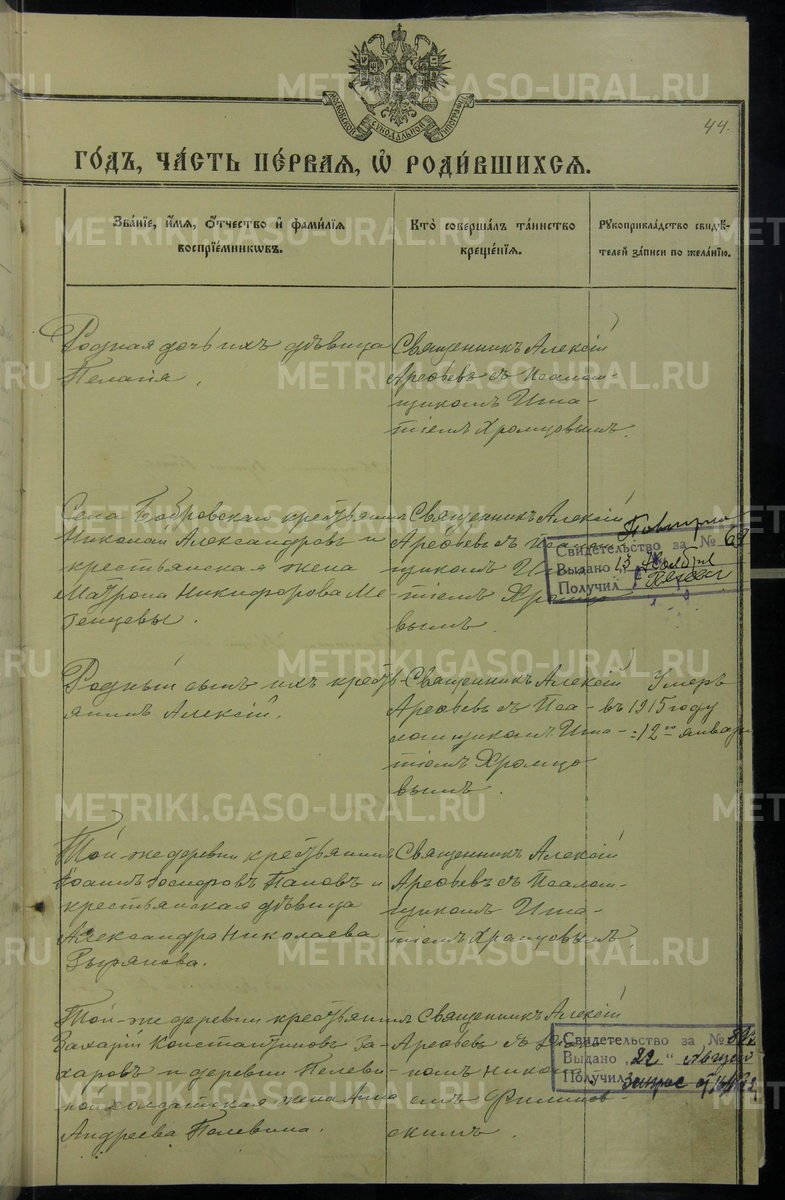 МОСКОВСКОЙ СѴНОДАЛЬНОЙ ТИПОГРАФІИ
44.
ГО́ДЪ, ЧА́СТЬ ПЕ́РВАЯ, Ѽ РОДИ́ВШИХСЯ.
Зва́нїе, и́мя, о́тчество и҆ фами́лїя
воспрїе́мникѡвъ.
Кто̀ соверша́лъ та́инство
креще́нїя.
Рꙋкоприкла́дство свидѣ́-
телей за́писи по жела́нїю.
Родная дочь ихъ дѣвица
Пелагія.
Священникъ Алексій
Арефьевъ съ Псалом-
щикомъ Игна-
тіемъ Хромцовымъ.
Села Бобровскаго крестьянинъ
Николай Александровъ и
крестьянская жена
Матрона Никифорова Ме-
зенцевы.
Священникъ Алексій
Арефьевъ съ Псалом-
щикомъ Игна-
тіемъ Хромцо-
вымъ.
Повторно
Свидетельство за № 68
Выдано „13 Ноября
Получил
Родный сынъ ихъ кресть-
янинъ Алексій.
Священникъ Алексій
Арефьевъ съ Пса-
ломщикомъ Игна-
тіемъ Хромцо-
вымъ.
Умеръ
въ 1915 году
12го января
Той-же деревни крестьянинъ
Іоаннъ Іосифовъ Пановъ и
крестьянская дѣвица
Александра Николаева
Зырянова.
Священникъ Алексій
Арефьевъ съ Псалом-
щикомъ Игна-
тіемъ Хромцовымъ.
Той-же деревни крестьянинъ
Захарій Константиновъ За-
харовъ и деревни Пелеви-
ной солдатская жена Анна
Андреева Пелевина.
Священникъ Алексій
Арефьевъ съ
Филипов-
скимъ.
Свидетельство за №
Выдано „22"
Получил запрос
METRIKI.GASO-URAL.RU